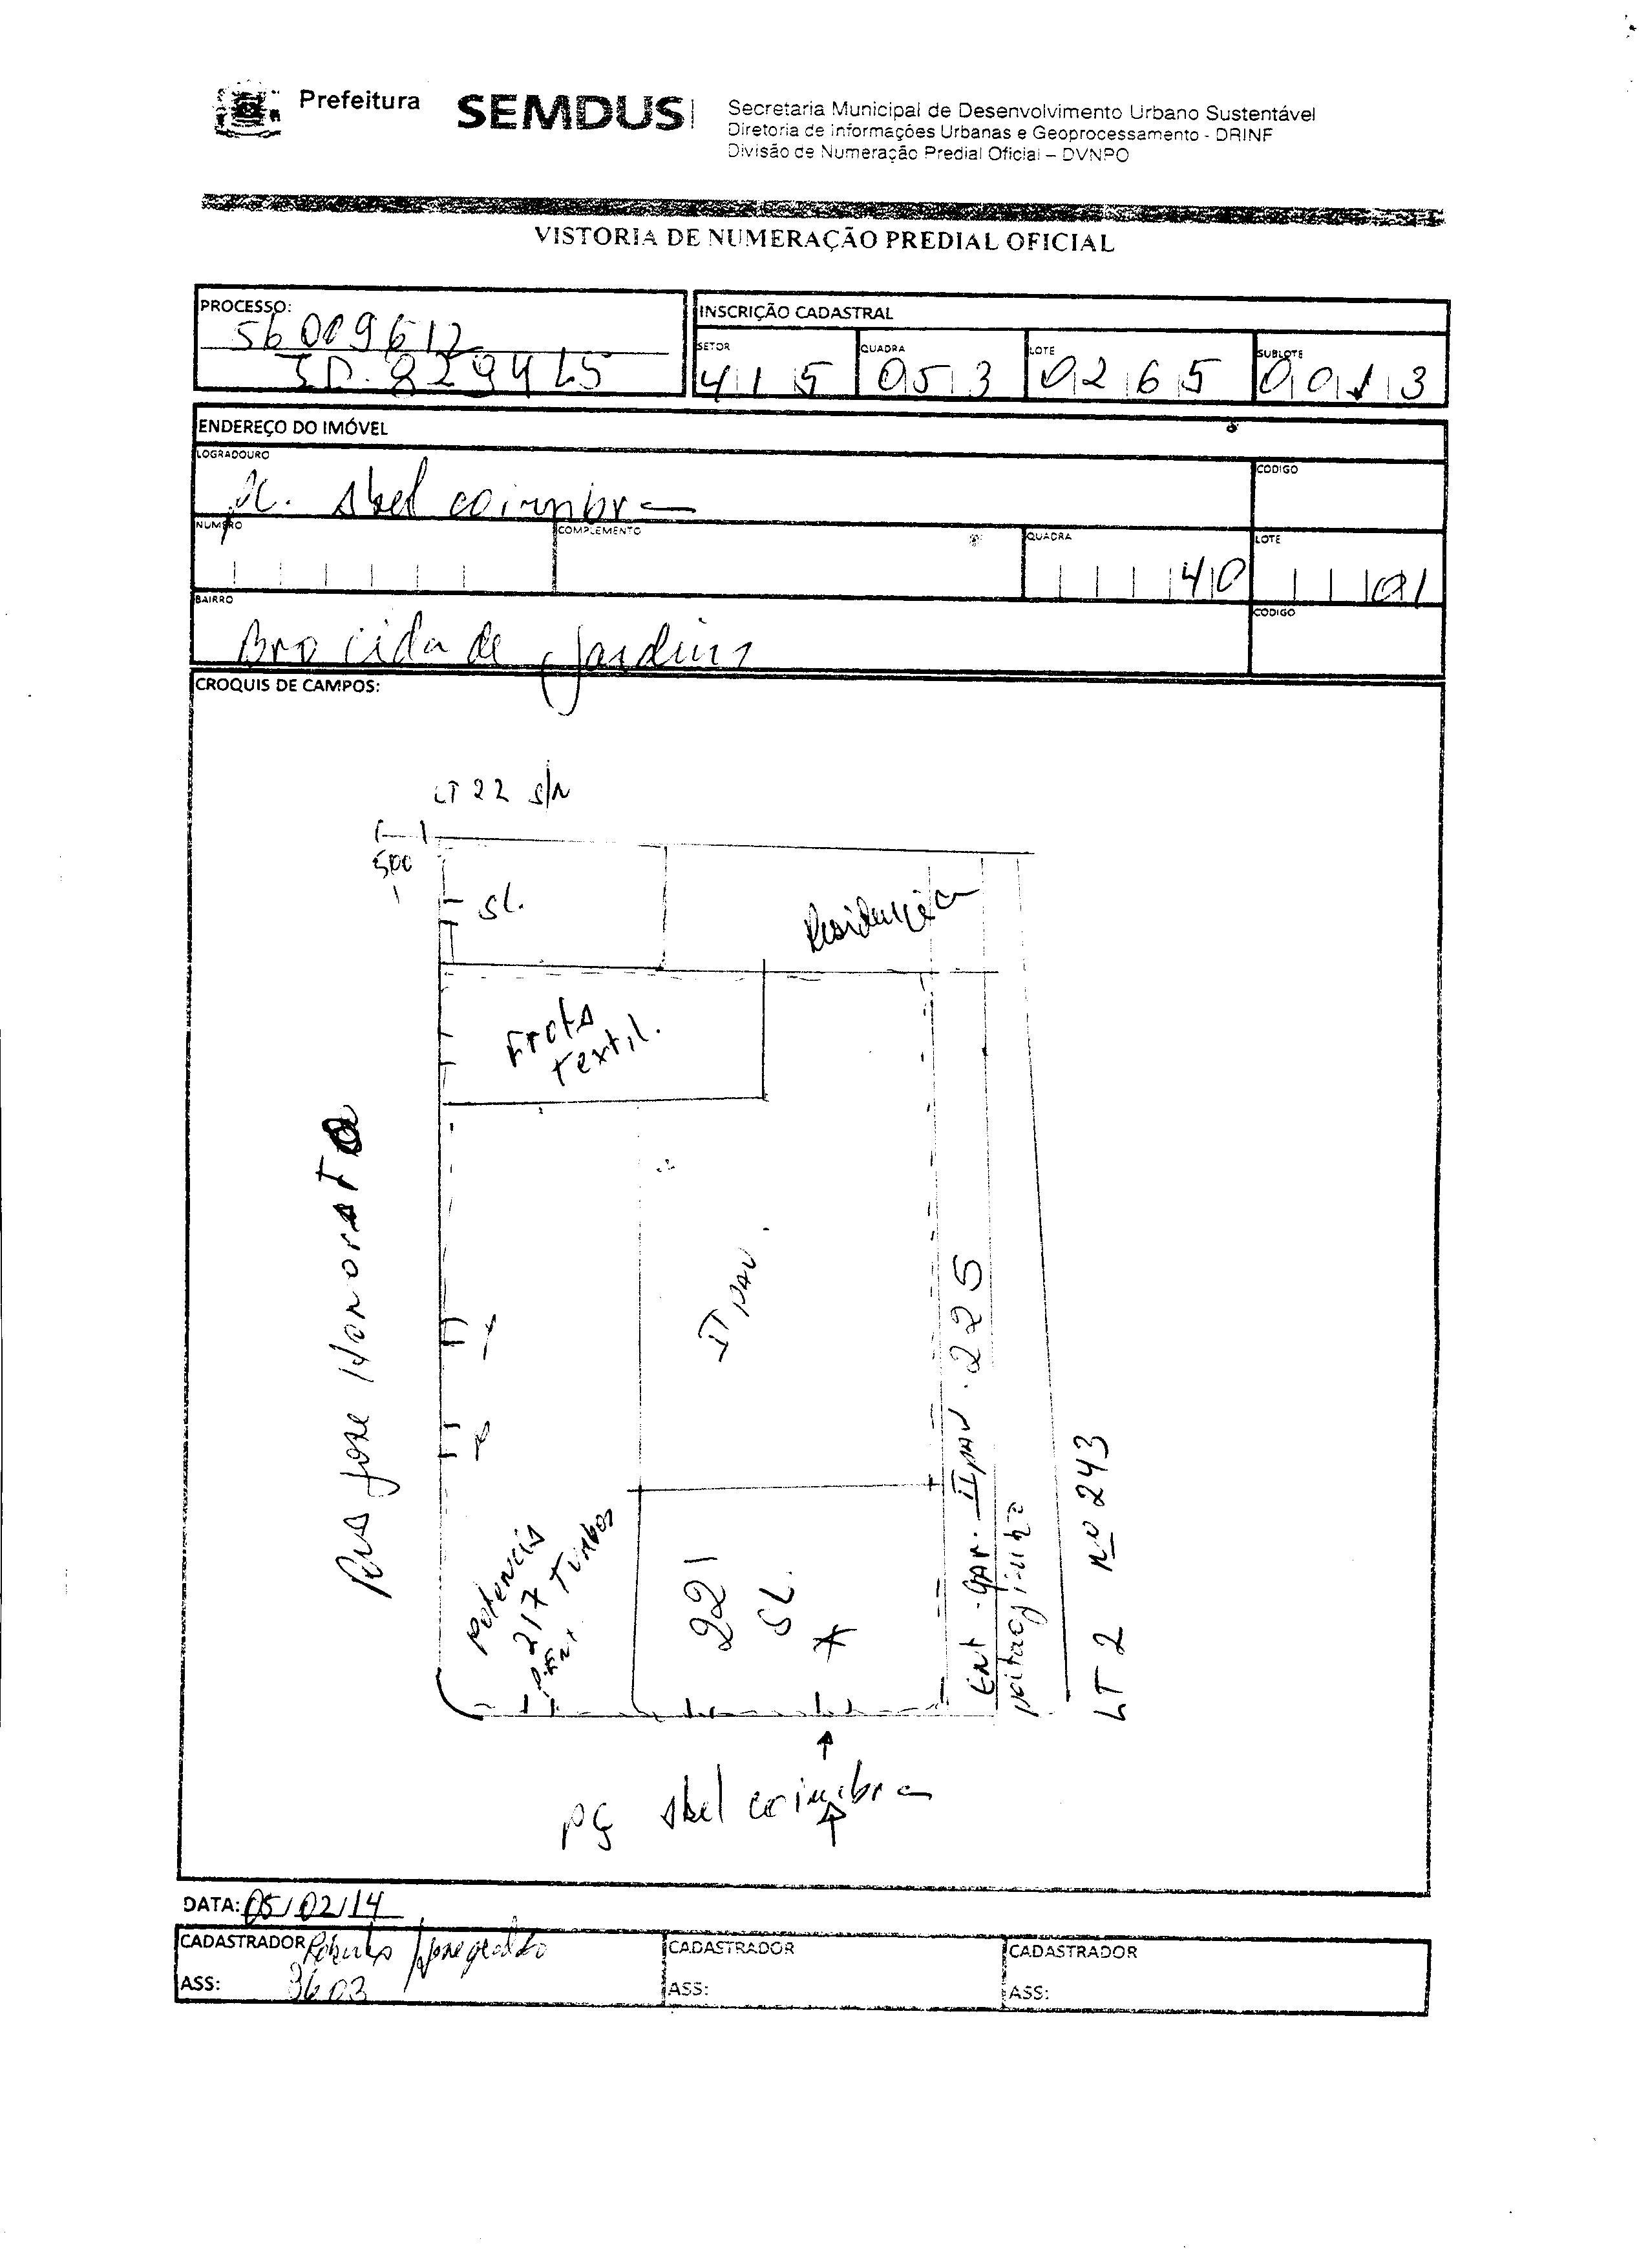 Prefeitura
SEMDUS
Secretaria Municipal de Desenvolvimento Urbano Sustentável
Diretoria de Informações Urbanas e Geoprocessamento - DRINF
Divisão de Numeração Predial Oficial – DVNPO
VISTORIA DE NUMERAÇÃO PREDIAL OFICIAL
PROCESSO:
56009612
INSCRIÇÃO CADASTRAL
SETOR QUADRA LOTE SUBLOTE
415 053 0265 0013
ENDEREÇO DO IMÓVEL
LOGRADOURO CODIGO
Abel coimbra
NUMERO COMPLEMENTO QUADRA LOTE
40 01
BAIRRO CODIGO
Bro cidade Jardins
CROQUIS DE CAMPOS:
LT 22 s/n
500
SL.
Residencia
Frota
textil.
Rua Jose Honorato
II PAV.
Potencia
217 Tunbos
221
SL.
Ent. GAR. II PAV. 225
LT 2 nº 243
PÇ Abel coimbra
DATA: 05/02/14
CADASTRADOR Roberto CADASTRADOR CADASTRADOR
ASS: 3603 ASS: ASS: